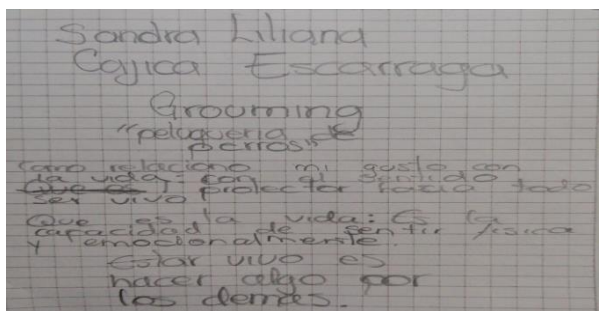 Sandra Liliana
Cajica Escarraga
Grouming
"peluqueria de
perros"
Como relaciono mi gusto con
la vida: con el sentido
protector hacia todo
ser vivo
Que es la vida: Es la
capacidad de sentir fisica
y emocionalmente.
Estar vivo es
hacer algo por
los demas.